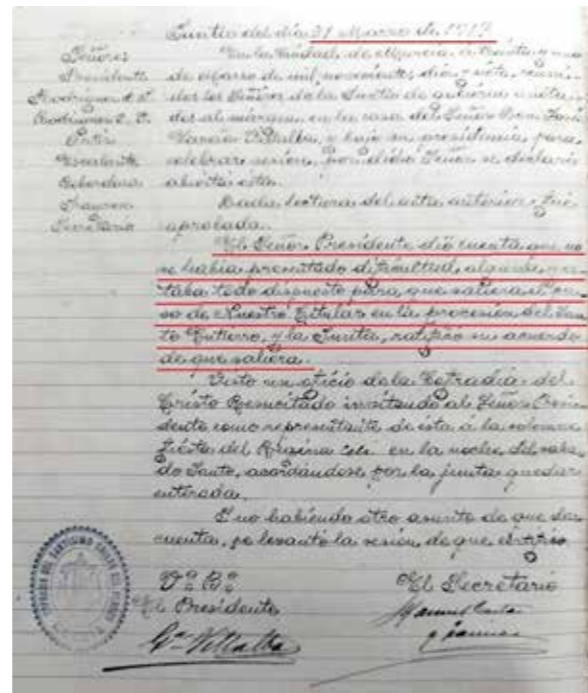 Junta del día 31 Marzo de 1917
Señores
Presidente
Rodríguez
Rodríguez
Ortín
Escalante
Secretario
En la Ciudad de Murcia a treinta y uno
de Marzo de mil novecientos diez y siete, reuni-
dos los Señores de la Junta de anota-
dos al márgen, en la casa del Señor Don José
García Villalba, y bajo su presidencia para
celebrar sesión, por dicho Señor se declaró
abierta esta.
Dada lectura del acta anterior fué
aprobada.
El Señor Presidente dió cuenta que no
se habia presentado dificultad alguna, y es-
taba todo dispuesto para que saliera el
de Nuestro Titular en la procesión del San-
to Entierro, y la Junta, ratificó su acuerdo
de que saliera.
Visto un oficio de la Cofradía del
Cristo Resucitado invitando al Señor Presi-
dente como representante de esta á la solemne
fiesta del Regina en la noche del saba-
do Santo, acordándose por la junta quedar
enterada.
Y no habiendo otro asunto de que dar
cuenta, se levantó la sesión de que certifico
Vº Bº
El Presidente
Gª Villalba
El Secretario
Manuel